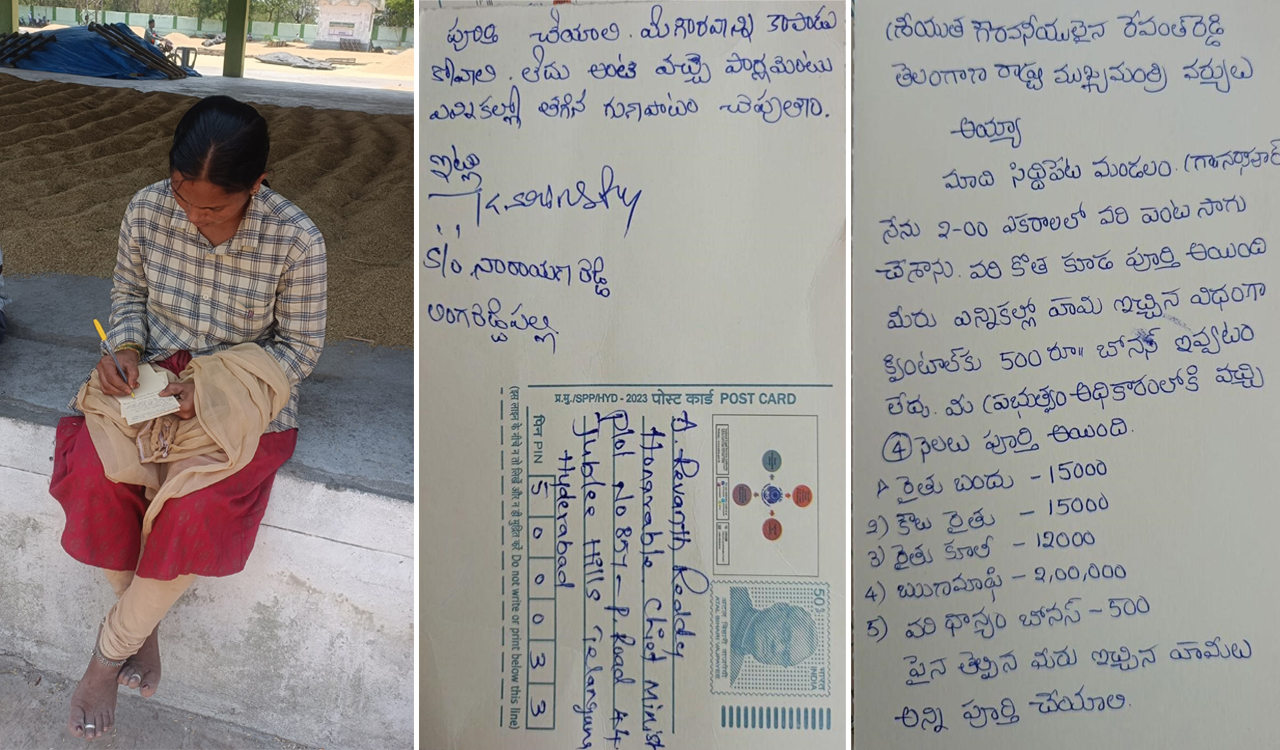 పూర్తి చేయాలి. మీ గౌరవాన్ని కాపాడు
కోవాలి. లేదు అంటే వచ్చె పార్లమెంటు
ఎన్నికల్లో తగిన గునపాటం చెపుతాం.
ఇట్లు
S/o నారాయణ రెడ్డి
లింగారెడ్డిపల్లి.
प्र.मु./SPP/HYD - 2023 पोस्ट कार्ड POST CARD
A. Revanth Reddy
Honarable Chief Minist
Plot No 857 - P. Road 44
Juble Hills Telangana
Hyderabad
पिन PIN 5 0 0 0 3 3
(इस लाइन के नीचे न तो लिखें और न ही मुद्रित करें Do not write or print below this line)
50
भारत INDIA
अटल बिहारी वाजपेयी
ATAL BIHARI VAJPAYEE
శ్రీయుత గౌరవనీయులైన రేవంత్ రెడ్డి
తెలంగాణ రాష్ట్ర ముఖ్యమంత్రి వర్యులు
అయ్యా
మాది సిద్దిపేట మండలం
నేను 2-00 ఎకరాలలో వరి పంట సాగు
చేశాను. వరి కోత కూడ పూర్తి అయింది
మీరు ఎన్నికల్లో హామి ఇచ్చిన విధంగా
క్వింటాల్‌కు 500 రూ॥ బోనస్ ఇవ్వటం
లేదు. మీ ప్రభుత్వం అధికారంలోకి వచ్చి
4 నెలలు పూర్తి అయింది.
1) రైతు బందు - 15000
2) కౌలు రైతు - 15000
3) రైతు కూలీ - 12000
4) ఋణమాఫి - 2,00,000
5) వరి ధాన్యం బోనస్ - 500
పైన తెల్పిన మీరు ఇచ్చిన హామీలు
అన్ని పూర్తి చేయాలి.